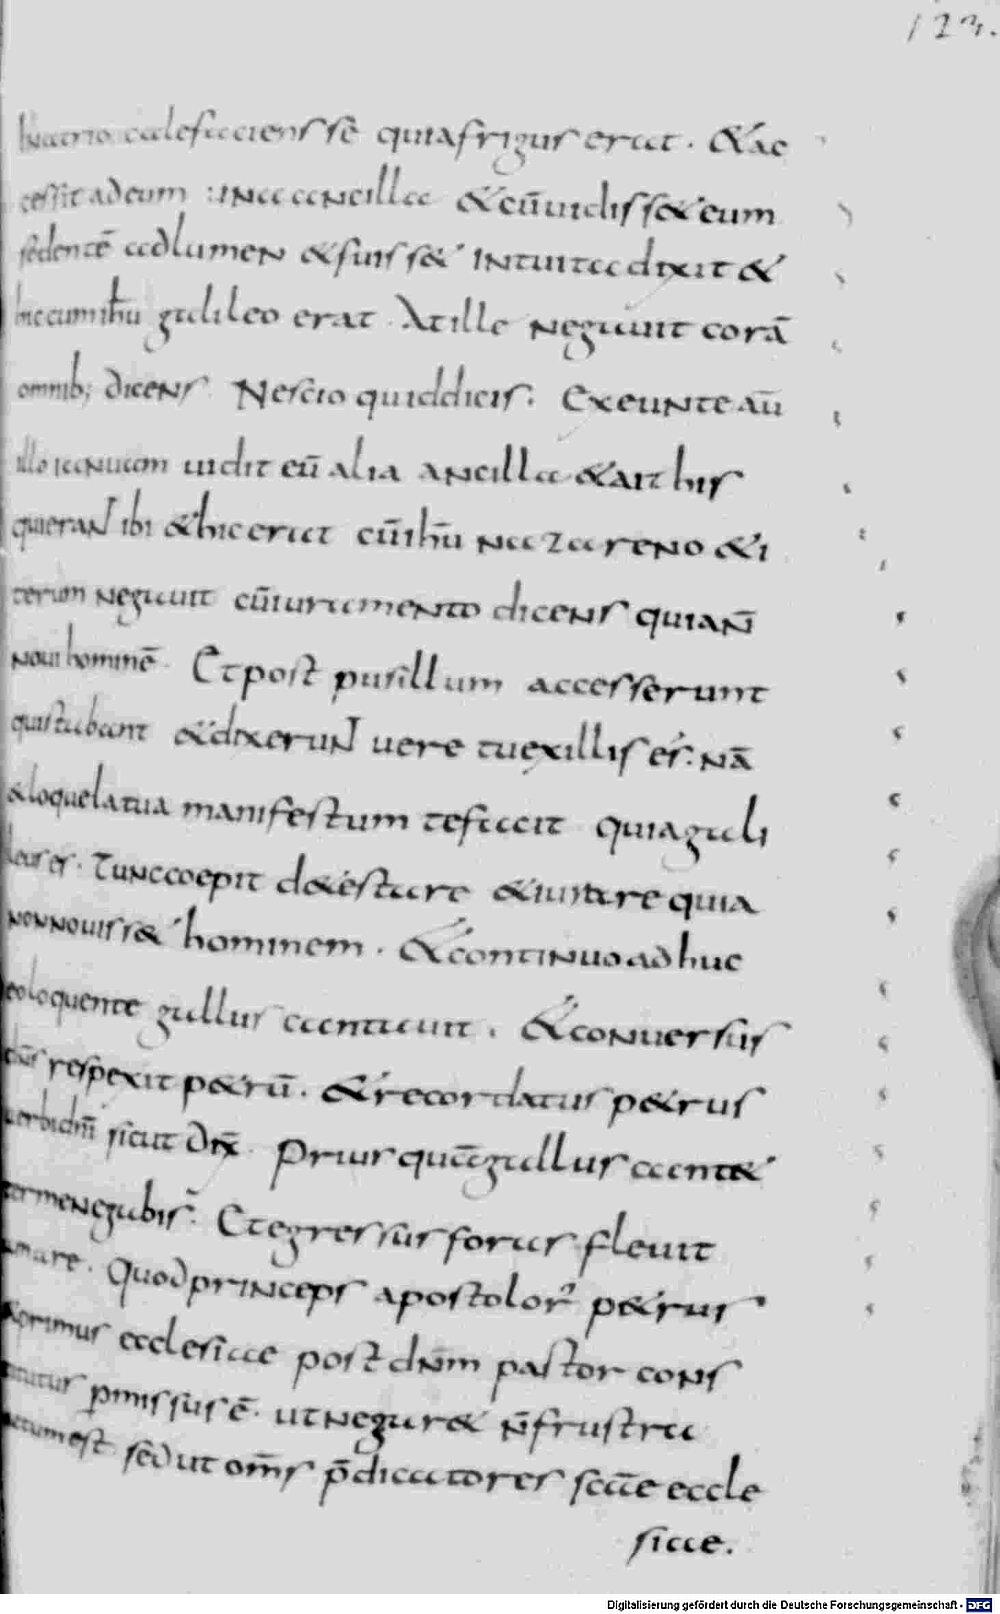 123.
inatrio calefaciens sē quia frigus erat. & ac
cessit ad eum : in a ancilla & cū uidiss& eum
sedentē ad lumen & fuiss& intuita dixit &
hic cum ihū galileo erat. At ille negauit corā
omnib; dicens. Nescio quid dicis. Exeunte aū
illo ianuam uidit eū alia ancilla & ait his
qui erant ibi & hic erat cū ihū nazareno & i
terum negauit cū iuramento dicens quia ñ
noui hominē. Et post pusillum accesserunt
qui stabant & dixerunt uere tu ex illis es: nā
& loquela tua manifestum te facit quia gali
leus es. Tunc coepit d&estare & iurare quia
non nouiss& hominem. & continuo adhuc
eo loquente gallus cantauit. & conuersus
dn̄s respexit p&rū. & recordatus p&rus
uerbi dn̄i sicut dix̄. Prius quā gallus cant&
ter me negabis. Et egressus foras fleuit
amare. Quod princeps apostolor p&rus
& primus ecclesiae post dn̄m pastor cons
titutus p̱missus ē. ut negar& ñ frustra
actum est sed ut om̄s p̄dicatores scāe eccle
siae.
Digitalisierung gefördert durch die Deutsche Forschungsgemeinschaft - DFG